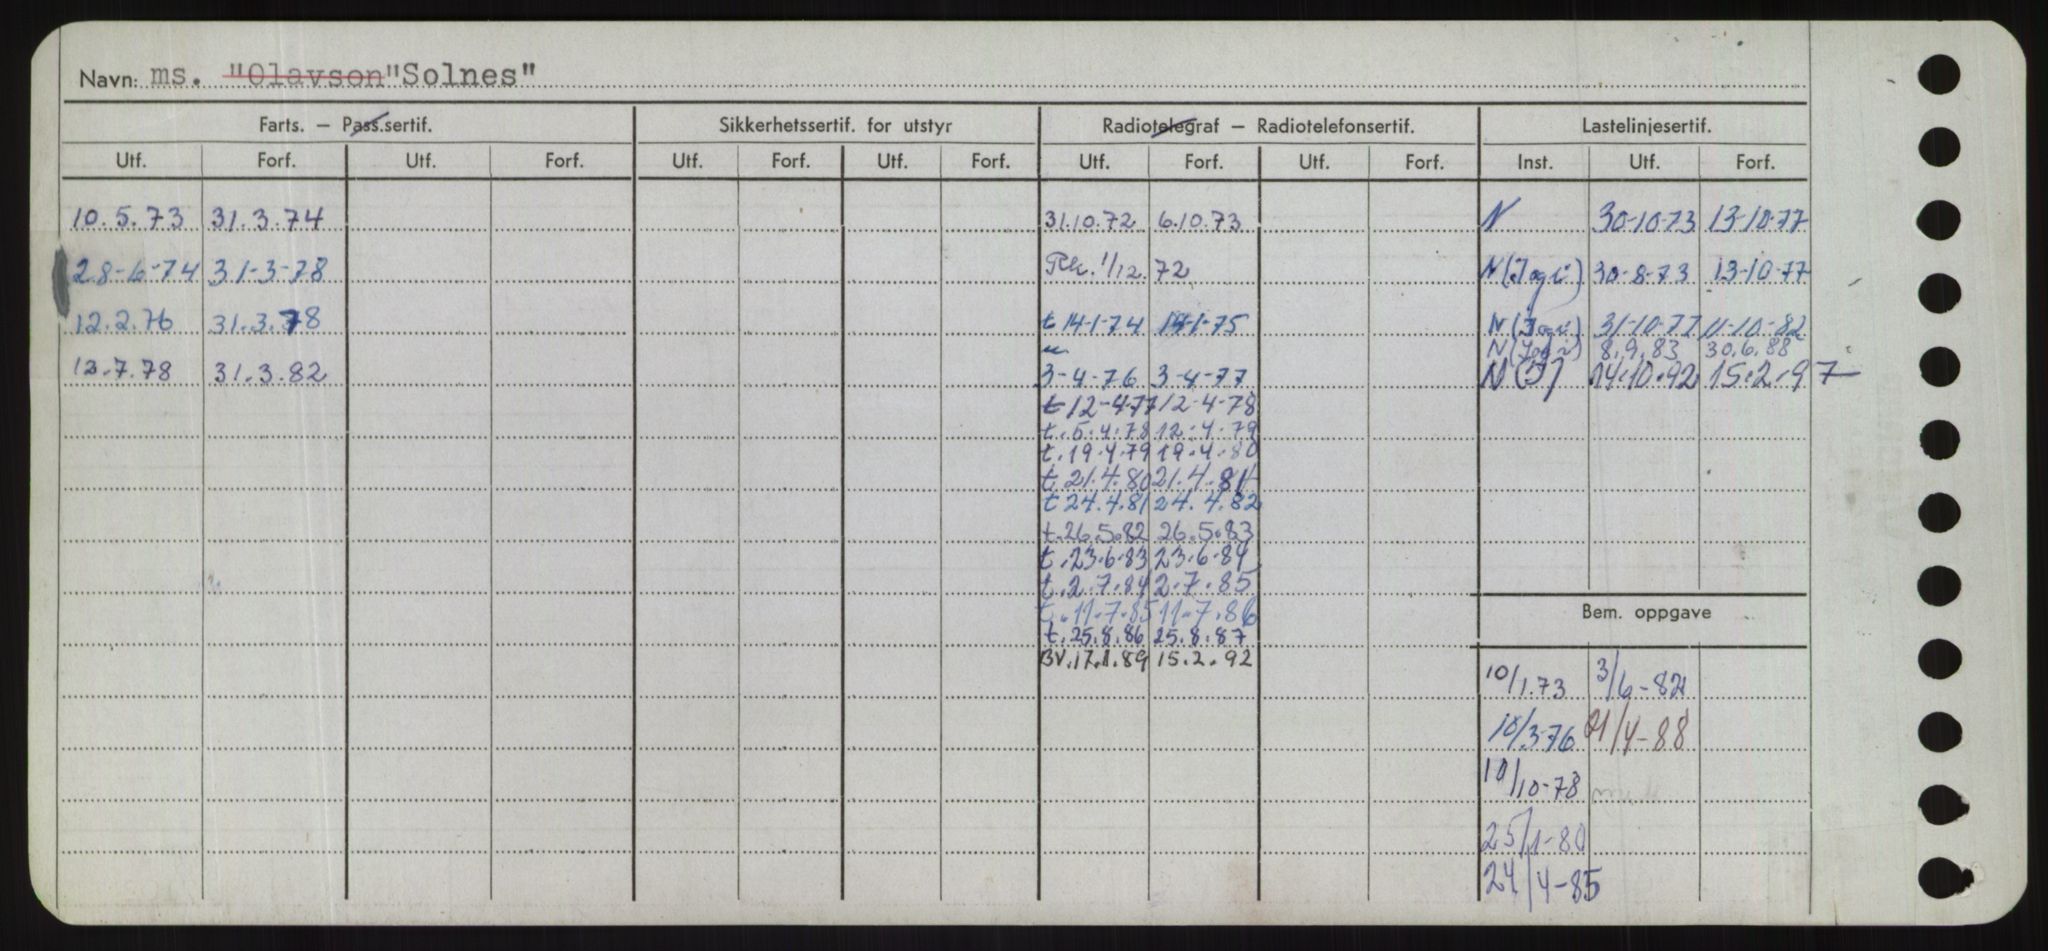 Navn: ms. "Olavson" "Solnes"
Farts. – Pass.sertif. Sikkerhetssertif. for utstyr Radiotelegraf – Radiotelefonsertif. Lastelinjesertif.
Utf. Forf. Utf. Forf. Utf. Forf. Utf. Forf. Utf. Forf. Utf. Forf. Inst. Utf. Forf.
10.5.73 31.3.74 31.10.72 6.10.73 N 30-10-73 13-10-77
28-6-74 31-3-78 1/12.72 N 30-8-73 13-10-77
12.2.76 31.3.78 t 14-1-74 14-1-75 N 31-10-77 11-10-82
N 8.9.83 30.6.88
12.7.78 31.3.82 3-4-76 3-4-77 N(J) 14.10.92 15.2.97
t 12-4-77 12-4-78
t.5.4.78 12.4.79
t.19.4.79 19.4.80
t.21.4.80 21.4.81
t 24.4.81 24.4.82
t.26.5.82 26.5.83
t.23.6.83 23.6.84
t.2.7.84 2.7.85
t.11.7.85 11.7.86
Bem. oppgave
t.25.8.86 25.8.87
BV.17.1.89 15.2.92
10/1.73 3/6-82
10/3-76 21/4-88
10/10-78
25/1-80
24/4-85